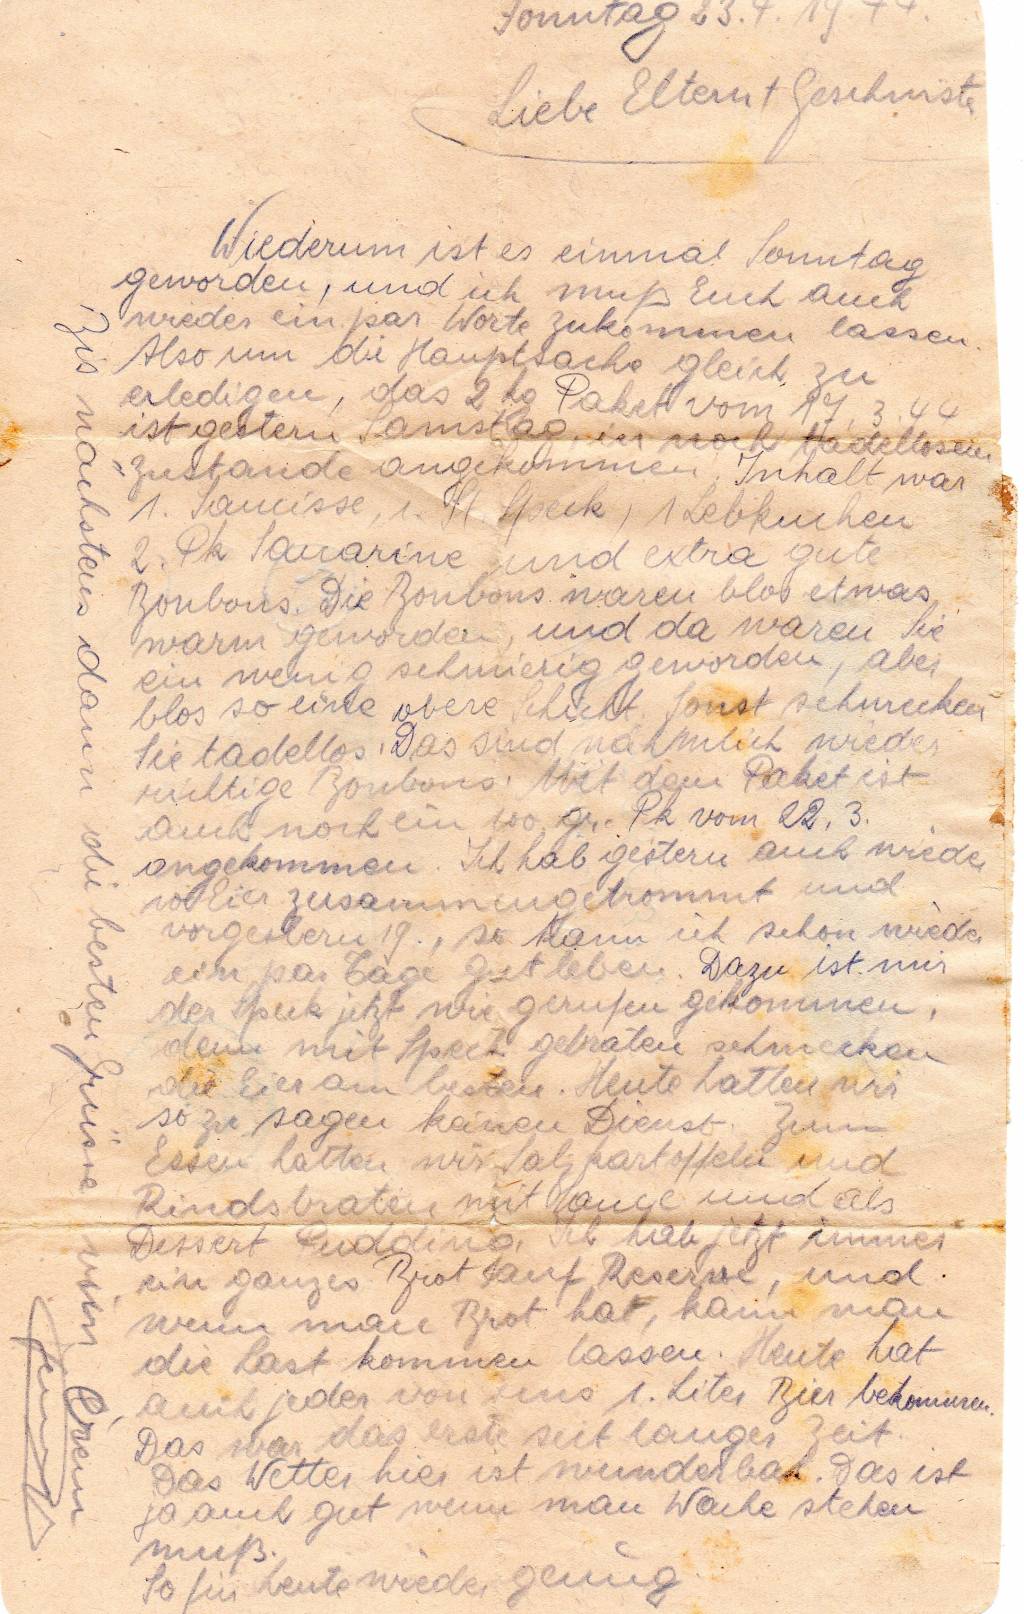 Sonntag 23.4.1944.
Liebe Eltern + Geschwiste
Wiederum ist es einmal Sonntag
geworden, und ich muß Euch auch
wieder ein par Worte zukommen lassen.
Also um die Hauptsache gleich zu
erledigen, das 2 kg Paket vom 17.3.44
ist gestern Samstag in noch tadellosem
Zustande angekommen. Inhalt war
1. Saucisse, 1. St. Speck, 1 Lebkuchen
2. Pk Sacarine und extra gute
Bonbons. Die Bonbons waren blos etwas
warm geworden, und da waren Sie
ein wenig schmierig geworden, aber
blos so eine obere Schicht. Sonst schmecken
Sie tadellos. Das sind nähmlich wieder
richtige Bonbons. Mit dem Paket ist
auch noch ein 100 gr. Pk vom 22.3.
angekommen. Ich hab gestern auch wieder
10 Eier zusammengetrommt und
vorgestern 19., so kann ich schon wieder
ein par Tage gut leben. Dazu ist mir
der Speck jetzt wie gerufen gekommen,
denn mit Speck gebraten schmecken
die Eier am besten. Heute hatten wir
so zu sagen keinen Dienst. Zum
Essen hatten wir Salzkartoffeln und
Rindsbraten mit Sauce und als
Dessert Pudding. Ich hab jetzt immer
ein ganzes Brot auf Reserve, und
wenn man Brot hat, kann man
die Last kommen lassen. Heute hat
auch jeder von uns 1. Liter Bier bekommen.
Das war das erste seit langer Zeit.
Das Wetter hier ist wunderbar. Das ist
ja auch gut wenn man Wache stehen
muß.
So für heute wieder genug.
Bis nächstens dann die besten Grüsse von Eurem